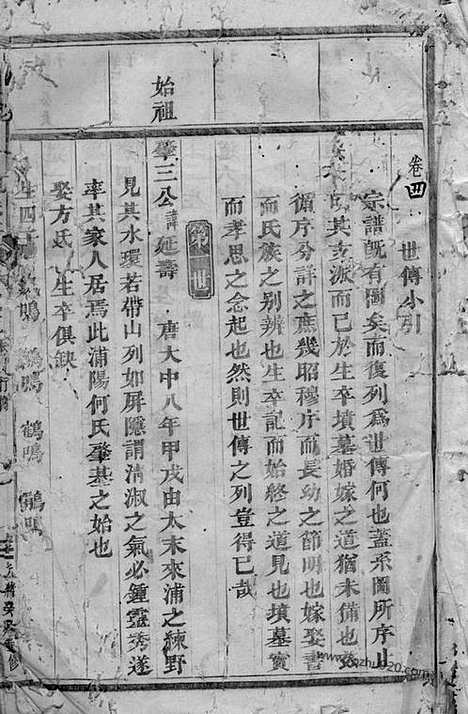 卷四
世傳小引
宗譜既有圖矣而復列為世傳何也蓋系圖所序止
氏其支派而已於生卒墳墓婚嫁之道猶未備也茲
循序分詳之庶幾昭穆序而長幼之節明也嫁娶書
而氏族之别辨也生卒記而始終之道見也墳墓實
而孝思之念起也然則世傳之列豈得已哉
第一世
始祖
肇三公諱延壽 唐大中八年甲戌由太末來浦之練野
見其水環若帶山列如屏隱謂清淑之氣必鍾靈秀遂
率其家人居焉此浦陽何氏肇基之始也
娶方氏 生卒俱缺
生四子 鳴 鳴 鶴鳴 鳴
光緒癸 重修